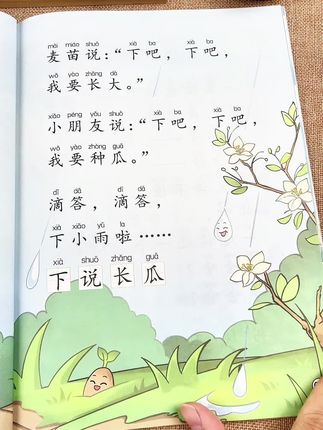 mài miáo shuō xià ba xià ba
麦苗说：“下吧，下吧，
wǒ yào zhǎng dà
我要长大。”
xiǎo péng yǒu shuō xià ba xià ba
小朋友说：“下吧，下吧，
wǒ yào zhòng guā
我要种瓜。”
dī dā dī dā
滴答，滴答，
xià xiǎo yǔ la
下小雨啦……
xià shuō zhǎng guā
下说长瓜